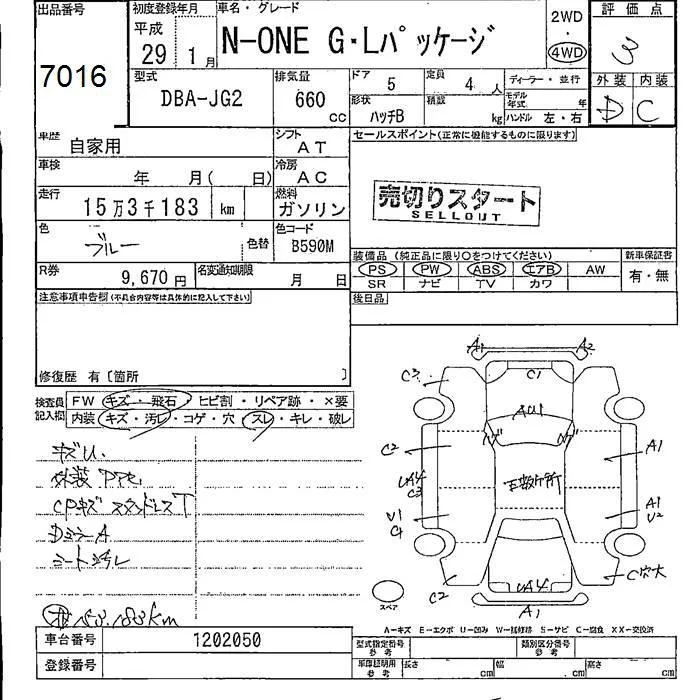 出品番号 初度登録年月 車名・グレード 2WD 評価点
7016 平成 29 1月 N-ONE G・Lパッケージ 4WD 3
型式 排気量 ドア 5 定員 4人 ディーラー・並行 外装 内装
DBA-JG2 660cc 形状 ハッチB 積載 kg モデル年式 年 ハンドル 左・右 D C
車歴 自家用 シフト AT セールスポイント(正常に機能するものに限ります)
車検 年 月( 日) 冷房 AC
走行 15万3千183 km 燃料 ガソリン 売切りスタート
SELLOUT
色 ブルー 色替 色コード B590M
装備品(純正品に限り○をつけてください) 新車保証書
R券 9,670円 名変通知期限 月 日 PS PW ABS エアB AW 有・無
SR ナビ TV カワ
注意事項申告欄(不具合内容等は具体的に記入して下さい) 後日品
修復歴 有〔箇所 〕
検査員記入欄 FW キズ・飛石・ヒビ割・リペア跡・×要
内装 キズ・汚レ・コゲ・穴・スレ・キレ・破レ
キズU.
外装
CPキズ スタッドレスT
DミラーA
シート汚レ
153.183km
A1 A2
C3 C1
AU1
C2 A1
UA4
C3
U1 A1
U2
C2 UA4 C穴大
A1
スペア
A―キズ E―エクボ U―凹み W―補修跡 S―サビ C―腐食 XX―交換済
車台番号 1202050 型式指定番号 参考 類別区分番号 参考
登録番号 車庫証明用 参考 長さ cm 幅 cm 高さ cm